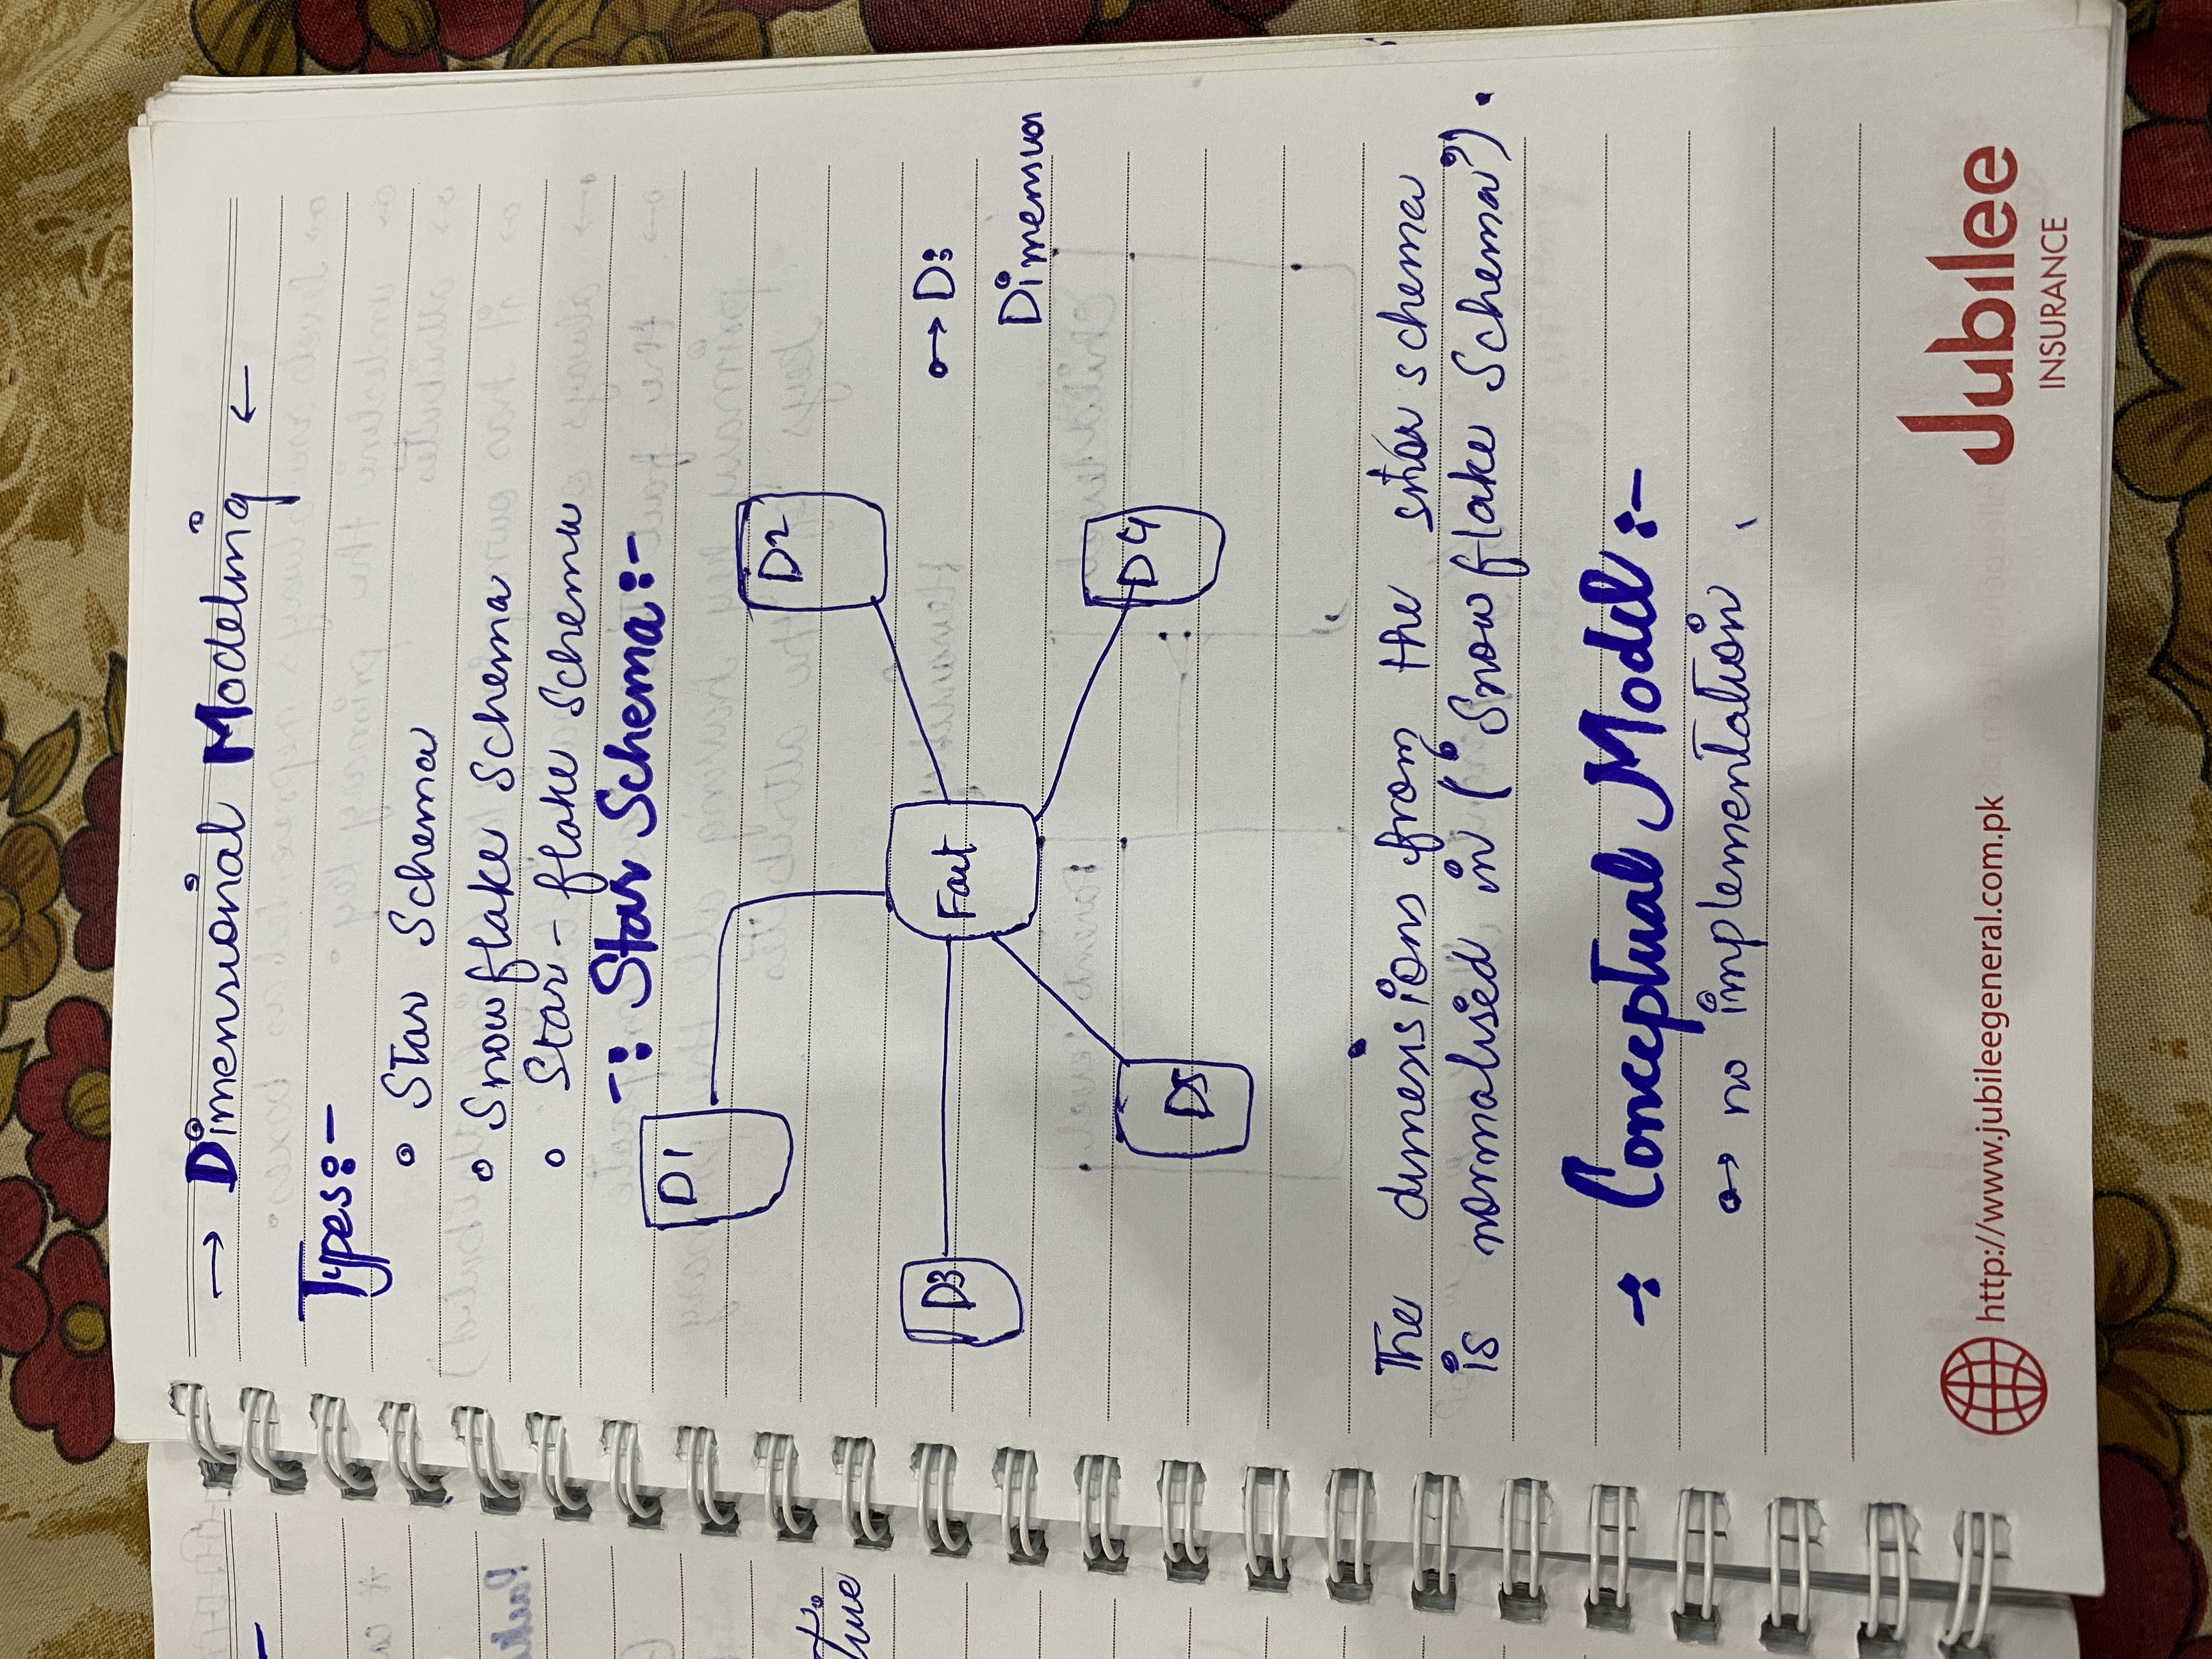 → Dimensional Modeling ←
Types:-
◦ Star Schema
◦ Snowflake Schema
◦ Star-flake Schema
-: Star Schema:-
D1
D2
D3
Fact
→ D:
Dimension
D4
D5
The dimensions from the star schema
is normalised in ("Snowflake Schema").
-: Conceptual Model :-
→ no implementation
http://www.jubileegeneral.com.pk
Jubilee
INSURANCE